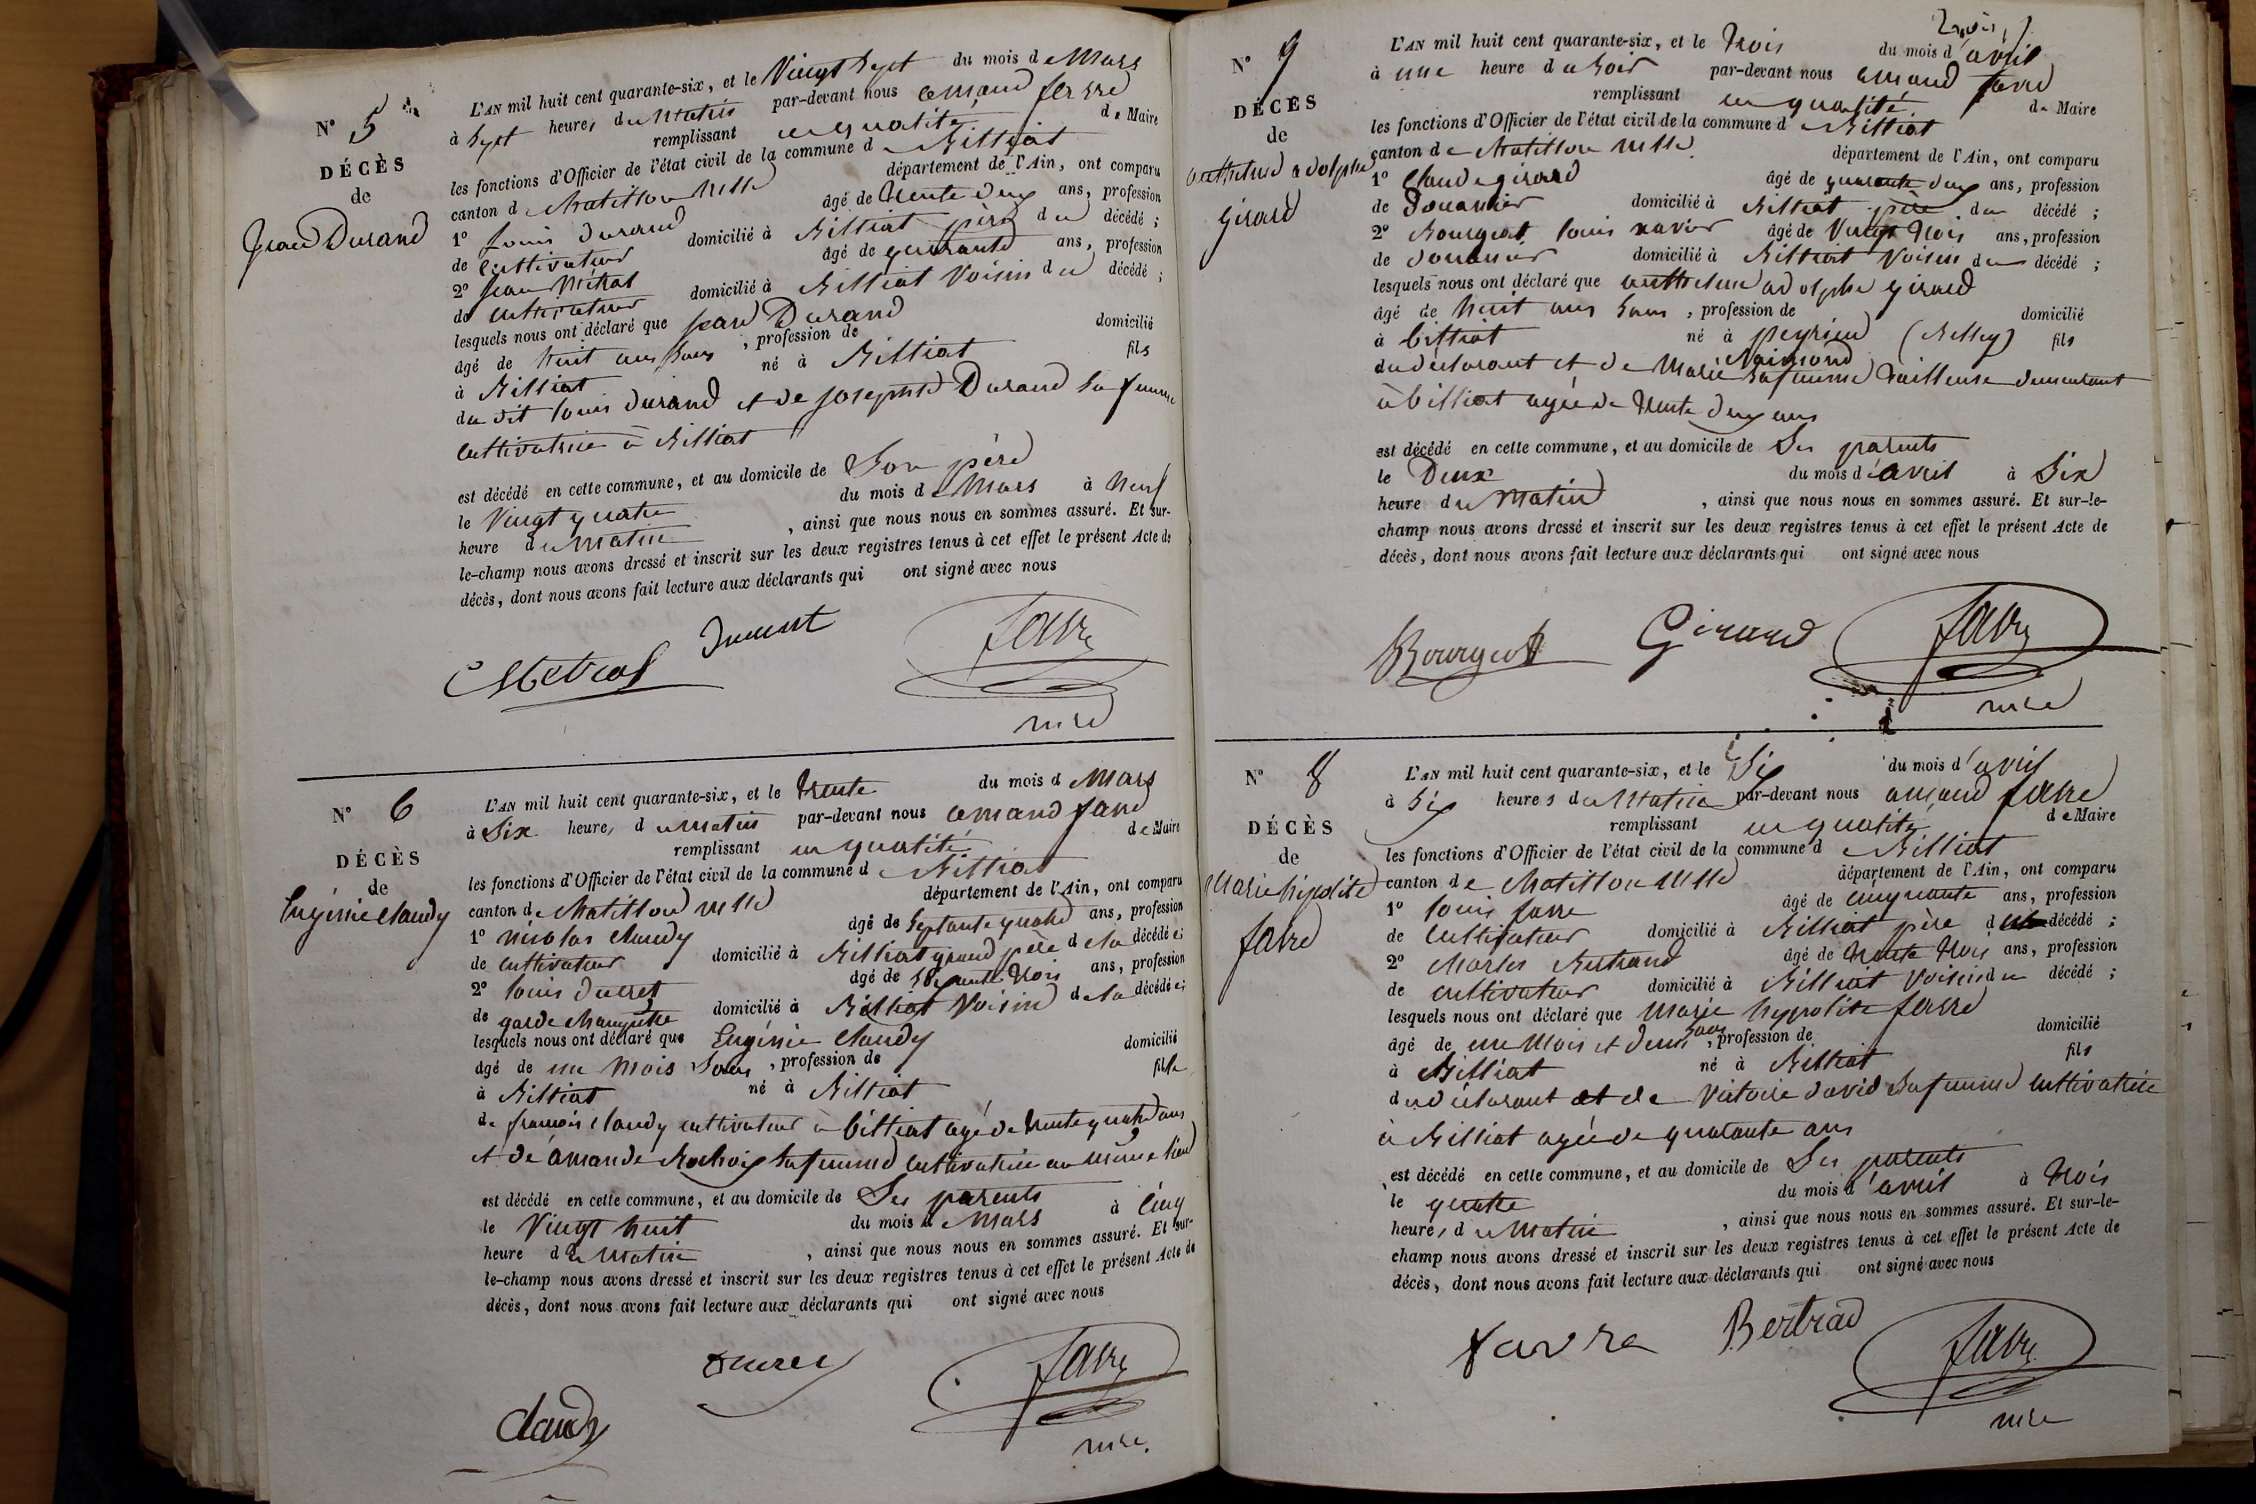 N° 5
DÉCÈS
de
Jean Durand
L'AN mil huit cent quarante-six, et le Vingt Sept du mois de Mars
à Sept heures du Matin par-devant nous amand favre
remplissant en qualité de Maire
les fonctions d'Officier de l'état civil de la commune de Billiat
canton de Chatillon département de l'Ain, ont comparu
1° Louis Durand âgé de trente deux ans, profession
de Cultivateur domicilié à Billiat père du décédé ;
2° Jean Métral âgé de quarante ans, profession
de cultivateur domicilié à Billiat Voisin du décédé ;
lesquels nous ont déclaré que Jean Durand
âgé de huit ans Sans , profession de domicilié
à Billiat né à Billiat fils
du dit louis durand et de Josephte Durand Sa femme
Cultivatrice à Billiat
est décédé en cette commune, et au domicile de Son père
le Vingt quatre du mois de Mars à Neuf
heure du Matin , ainsi que nous nous en sommes assuré. Et sur-
le-champ nous avons dressé et inscrit sur les deux registres tenus à cet effet le présent Acte de
décès, dont nous avons fait lecture aux déclarants qui ont signé avec nous
Metral favre
mre
N° 6
DÉCÈS
de
Eugénie Claudy
L'AN mil huit cent quarante-six, et le trente du mois d Mars
à Six heures du Matin par-devant nous amand favre
remplissant en qualité de Maire
les fonctions d'Officier de l'état civil de la commune de Billiat
canton de Chatillon département de l'Ain, ont comparu
1° nicolas Claudy âgé de Septante quatre ans, profession
de cultivateur domicilié à Billiat grand père de la décédée ;
2° louis ducret âgé de Soixante trois ans, profession
de garde champêtre domicilié à Billiat Voisin de la décédée ;
lesquels nous ont déclaré que Eugénie Claudy
âgé de un mois Sans , profession de domicilié
à Billiat né à Billiat fille
de françois Claudy cultivateur à billiat agé de trente quatre ans
et de amande Sa femme cultivatrice au même lieu
est décédé en cette commune, et au domicile de Ses parents
le Vingt huit du mois de Mars à Cinq
heure du Matin , ainsi que nous nous en sommes assuré. Et sur-
le-champ nous avons dressé et inscrit sur les deux registres tenus à cet effet le présent Acte de
décès, dont nous avons fait lecture aux déclarants qui ont signé avec nous
Claudy ducret favre
mre.
N° 7
DÉCÈS
de
anthelme adolphe
Girard
L'AN mil huit cent quarante-six, et le trois du mois d'avril
à une heure du Soir par-devant nous amand favre
remplissant en qualité de Maire
les fonctions d'Officier de l'état civil de la commune de Billiat
canton de Chatillon département de l'Ain, ont comparu
1° Claude girard âgé de quarante deux ans, profession
de Douanier domicilié à Billiat père du décédé ;
2° Bourgeat louis xavier âgé de Vingt trois ans, profession
de douanier domicilié à Billiat Voisin du décédé ;
lesquels nous ont déclaré que anthelme adolphe girard
âgé de huit ans Sans , profession de domicilié
à billiat né à peyrieu (Belley) fils
du déclarant et de Marie Raimond Sa femme tailleuse demeurant
à billiat agée de trente deux ans
est décédé en cette commune, et au domicile de Ses parents
le Deux du mois d'avril à Six
heure du Matin , ainsi que nous nous en sommes assuré. Et sur-le-
champ nous avons dressé et inscrit sur les deux registres tenus à cet effet le présent Acte de
décès, dont nous avons fait lecture aux déclarants qui ont signé avec nous
Bourgeat Girard favre
mre
N° 8
DÉCÈS
de
Marie hipolite
favre
L'AN mil huit cent quarante-six, et le Six du mois d'avril
à Six heures du Matin par-devant nous amand favre
remplissant en qualité de Maire
les fonctions d'Officier de l'état civil de la commune de Billiat
canton de Chatillon département de l'Ain, ont comparu
1° louis favre âgé de cinquante ans, profession
de Cultivateur domicilié à Billiat père du décédé ;
2° Charles Bertrand âgé de trente trois ans, profession
de cultivateur domicilié à Billiat Voisin du décédé ;
lesquels nous ont déclaré que Marie hypolite favre
âgé de un Mois et demi Sans , profession de domicilié
à Billiat né à Billiat fils
du déclarant et de Victoire david Sa femme cultivatrice
à Billiat agée de quarante ans
est décédé en cette commune, et au domicile de Ses parents
le quatre du mois d'avril à trois
heures du Matin , ainsi que nous nous en sommes assuré. Et sur-le-
champ nous avons dressé et inscrit sur les deux registres tenus à cet effet le présent Acte de
décès, dont nous avons fait lecture aux déclarants qui ont signé avec nous
favre Bertrad favre
mre